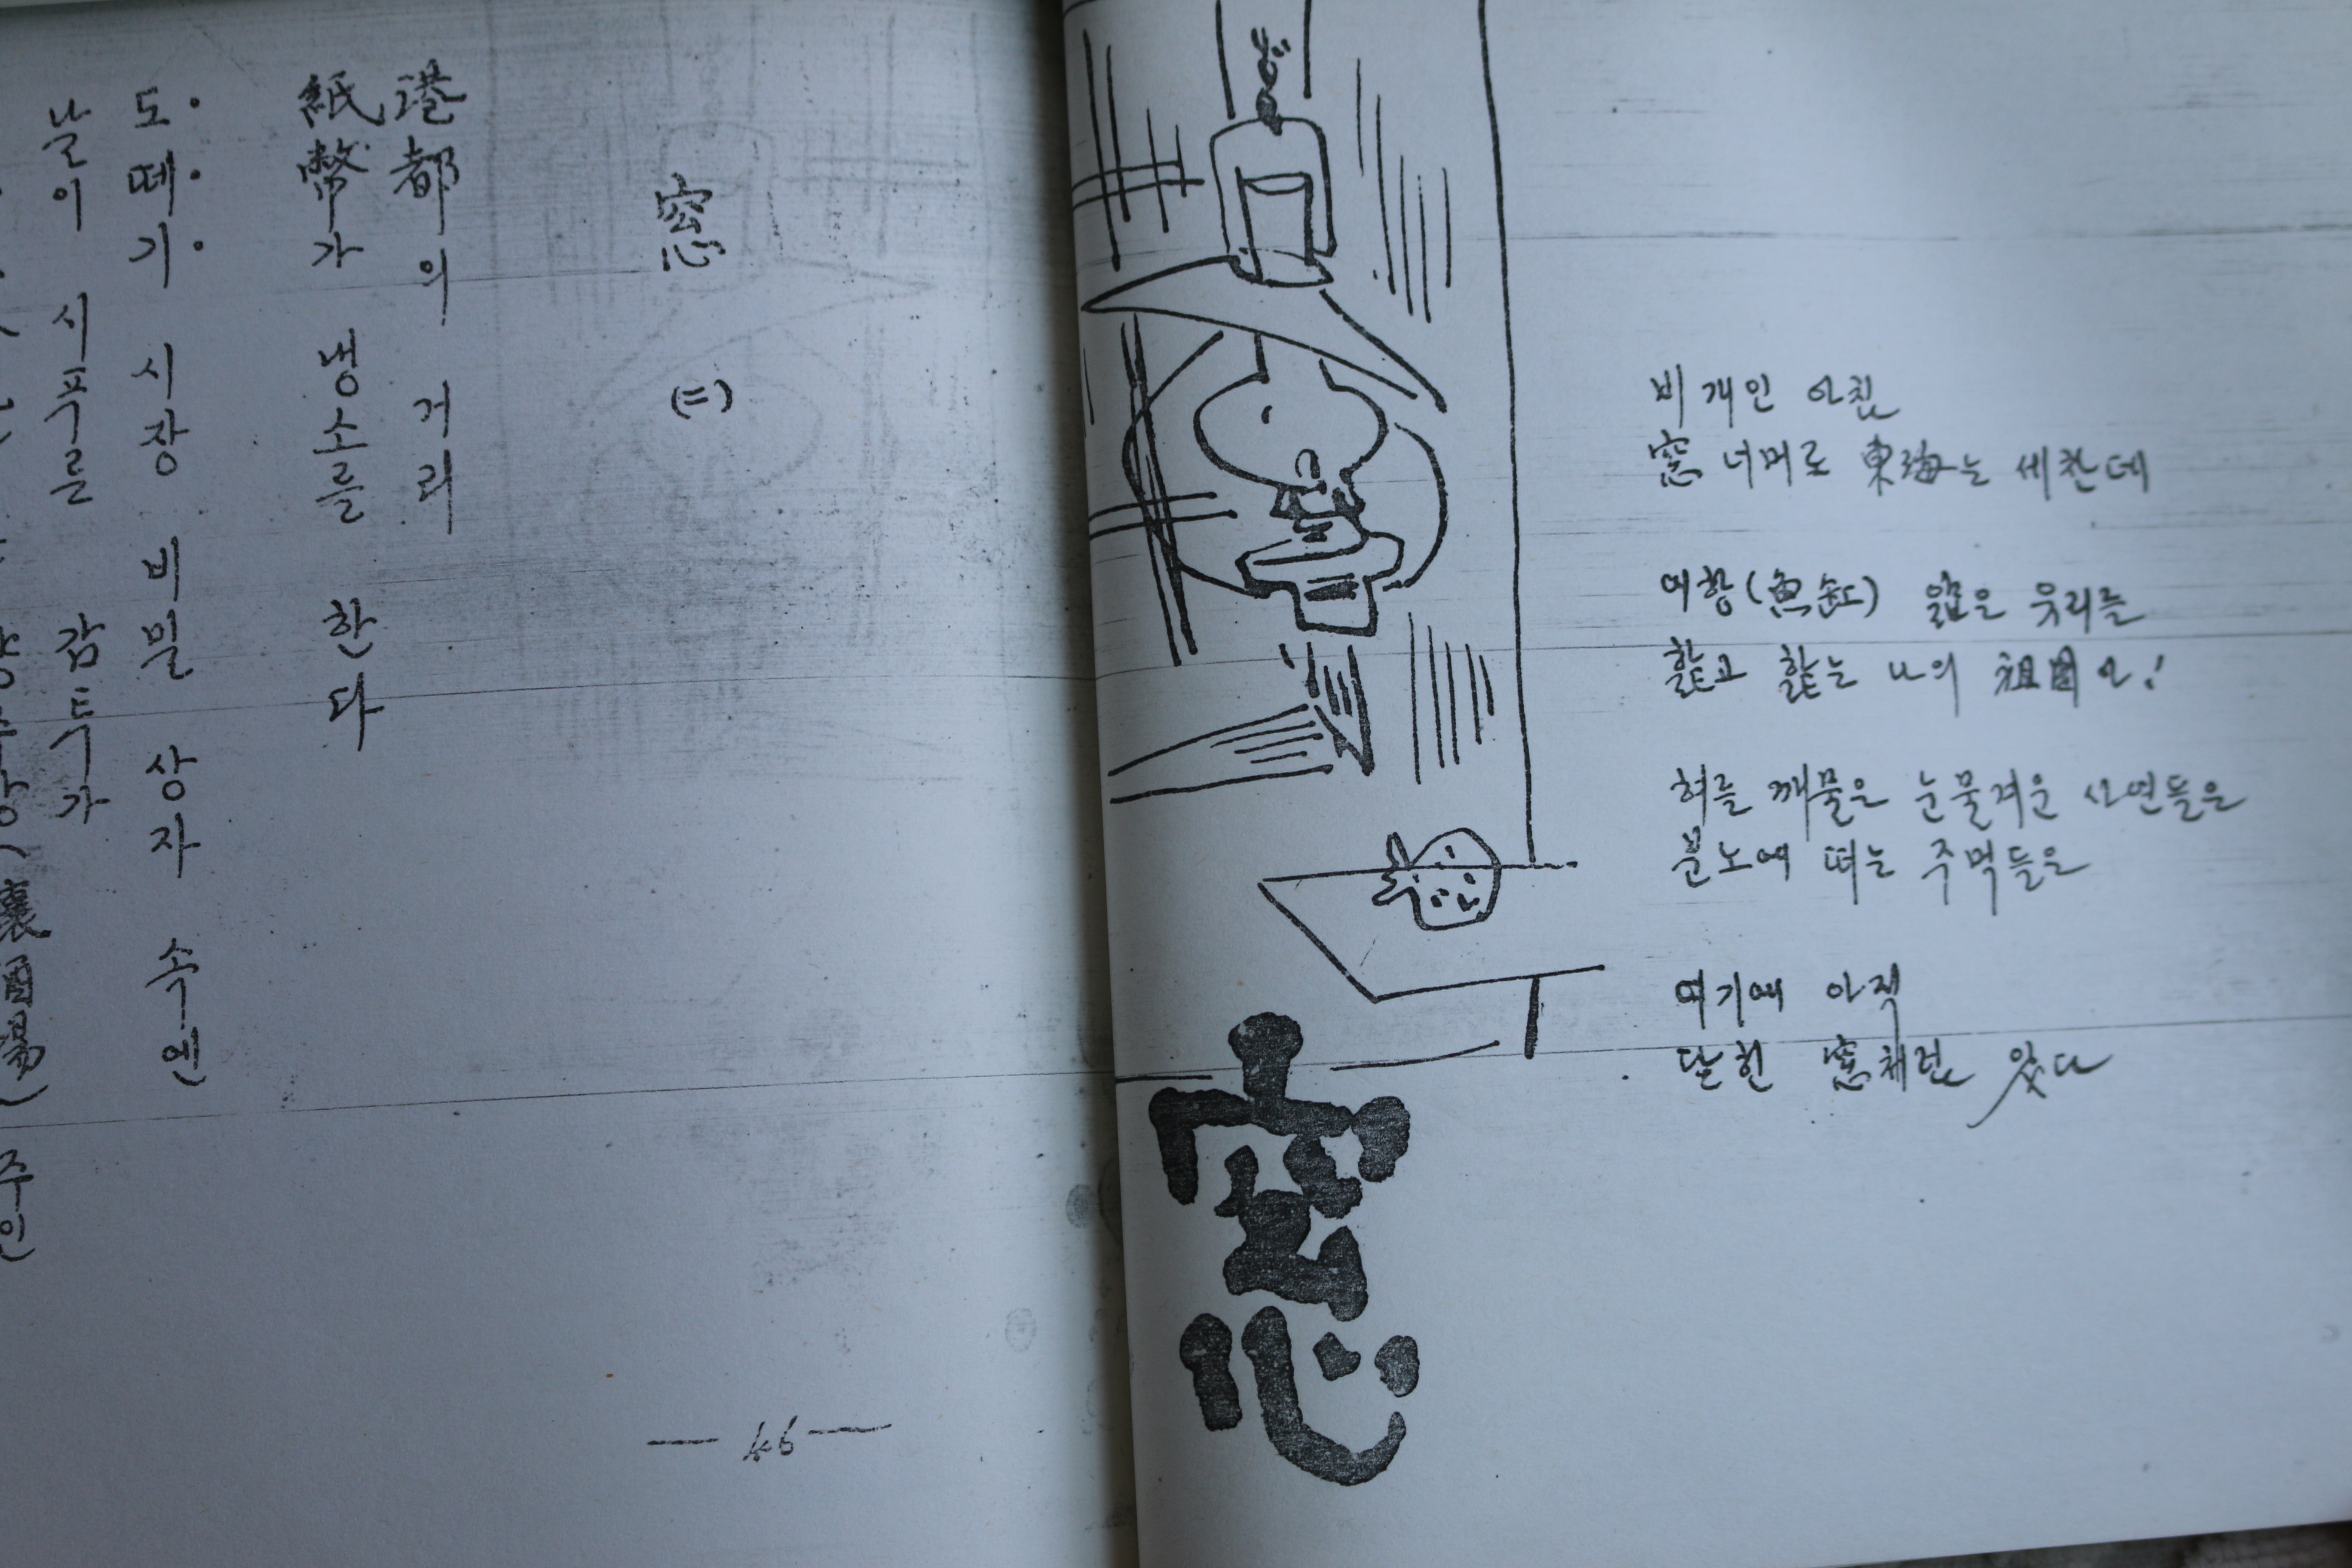 窓
비 개인 아침
窓 너머로 東海는 세찬데
어항(魚缸) 얇은 유리를
핥고 핥는 나의 祖国아!
혀를 깨물은 눈물겨운 사연들은
분노에 떠는 주먹들은
여기에 아직
닫힌 窓처럼 있다
窓 (二)
港都의 거리
紙幣가 냉소를 한다
도떼기 시장 비밀 상자 속엔
날이 시푸른 감투가
주인
— 46 —